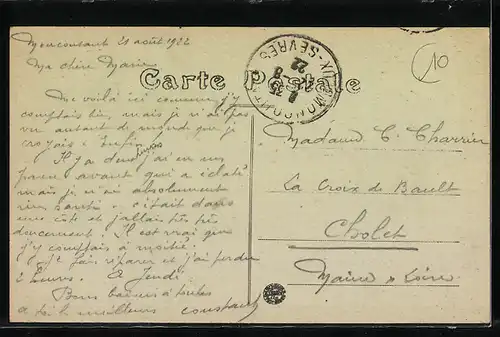 Moncoutant 21 août 1922
Ma chère Marie
Carte Postale
MONCOUTANT
X-SÈVRES
22
10
Me voilà ici comme j'y
comptais bien, mais je n'ai pas
vu autant de monde que je
croyais. Enfin
Il y a deux jours j'ai eu un
pneu avant qui a éclaté
mais je n'ai absolument
rien senti. c'était dans
une côte et j'allais très très
doucement. Il est vrai que
j'y comptais à moitié.
Je fais réparer et j'ai perdu
2 heures. A Jeudi
Bons baisers à toutes
a toi le meilleurs constant
Madame C. Charrier
La Croix de Bault
Cholet
Maine & Loire